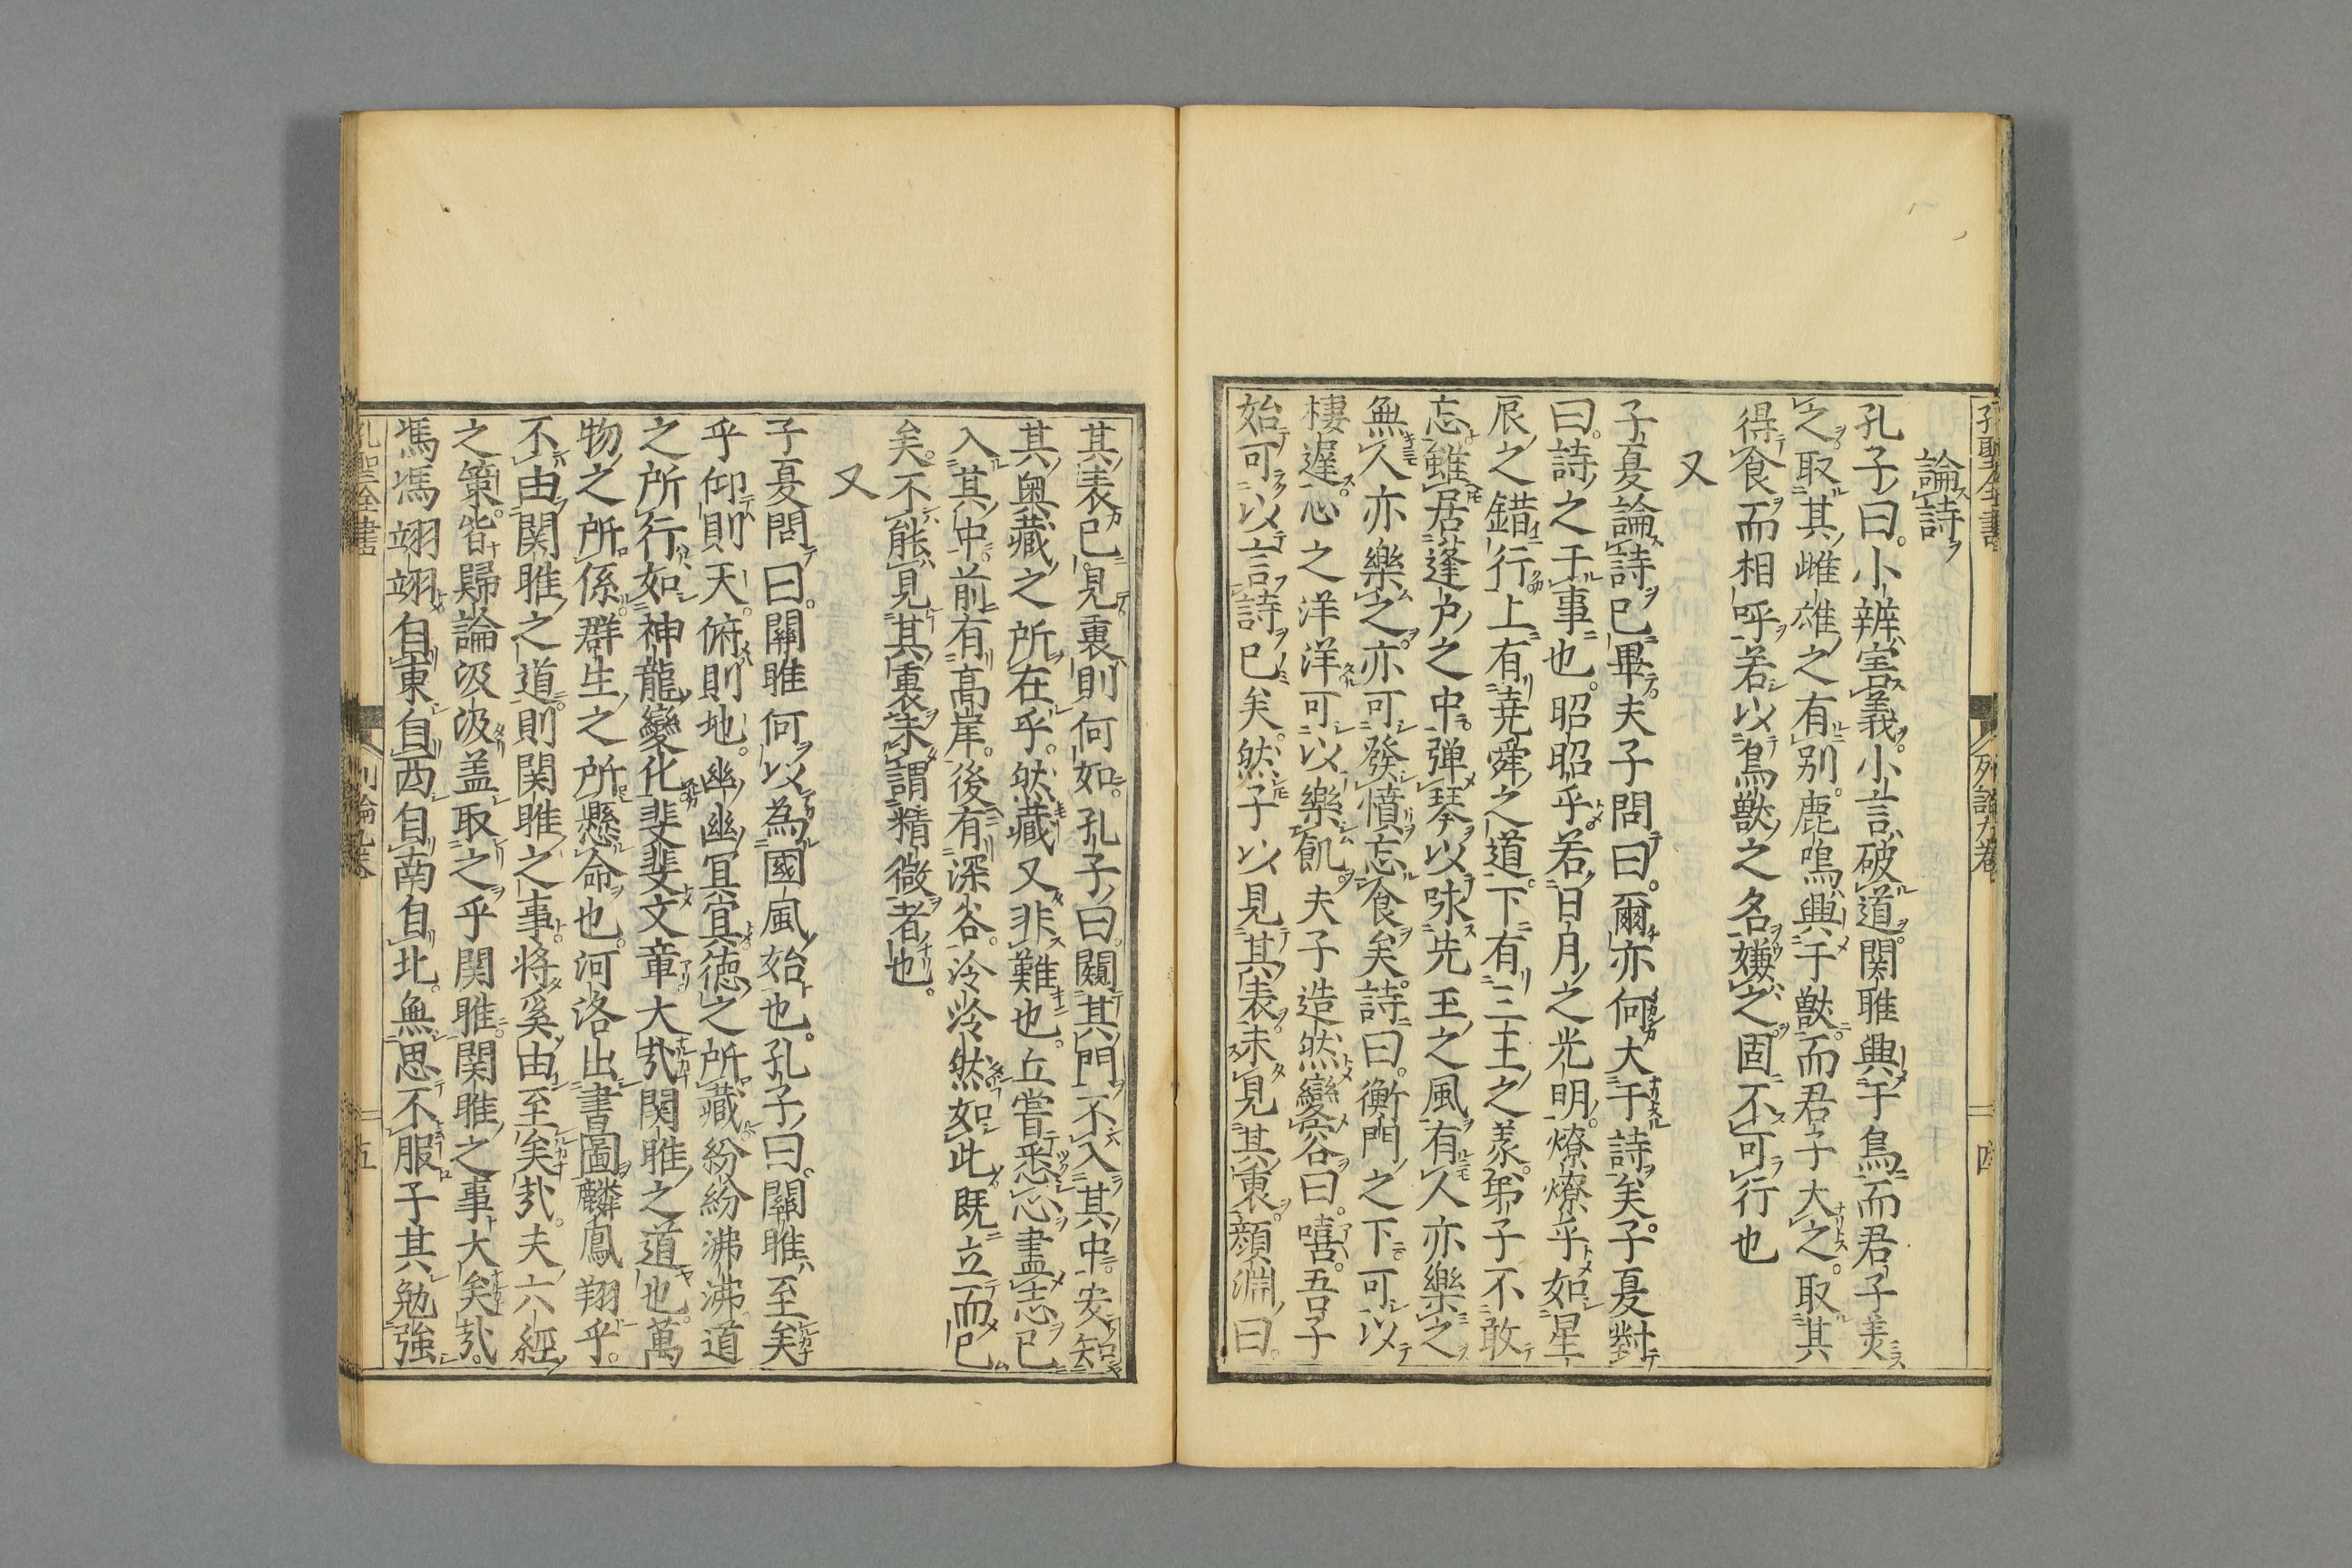 孔聖全書
論詩
孔子曰小辨害義小言破道関雎興于鳥而君子羙
之取其雌雄之有别鹿鳴興于獣而君子大之取其
得食而相呼若以鳥獣之名嫌之固不可行也
又
子夏論詩已畢夫子問曰爾亦何大于詩矣子夏對
曰詩之于事也昭昭乎若日月之光明燎燎乎如星
辰之錯行上有尭舜之道下有三王之義弟子不敢
忘雖居蓬户之中弾琴以咏先王之風有人亦樂之
無人亦樂之亦可發憤忘食矣詩曰衡門之下可以
棲遲泌之洋洋可以樂飢夫子造然變容曰嘻吾子
始可以言詩已矣然子以見其表未見其裏顔淵曰
四
其表已見裏則何如孔子曰闚其門不入其中安知
其奥藏之所在乎然藏又非難也丘嘗悉心盡志已
入其中前有高岸後有深谷泠泠然如此既立而已
矣不能見其裏未謂精微者也
又
子夏問曰關雎何以為國風始也孔子曰關雎至矣
乎仰則天俯則地幽幽冥冥徳之所藏紛紛沸沸道
之所行如神龍變化斐斐文章大㢤関雎之道也萬
物之所係群生之所懸命也河洛出書圖麟鳳翔乎
不由関雎之道則関雎之事将奚由至矣㢤夫六經
之策皆歸論汲汲盖取之乎関雎関雎之事大矣㢤
馮馮翊翊自東自西自南自北無思不服子其勉強
五